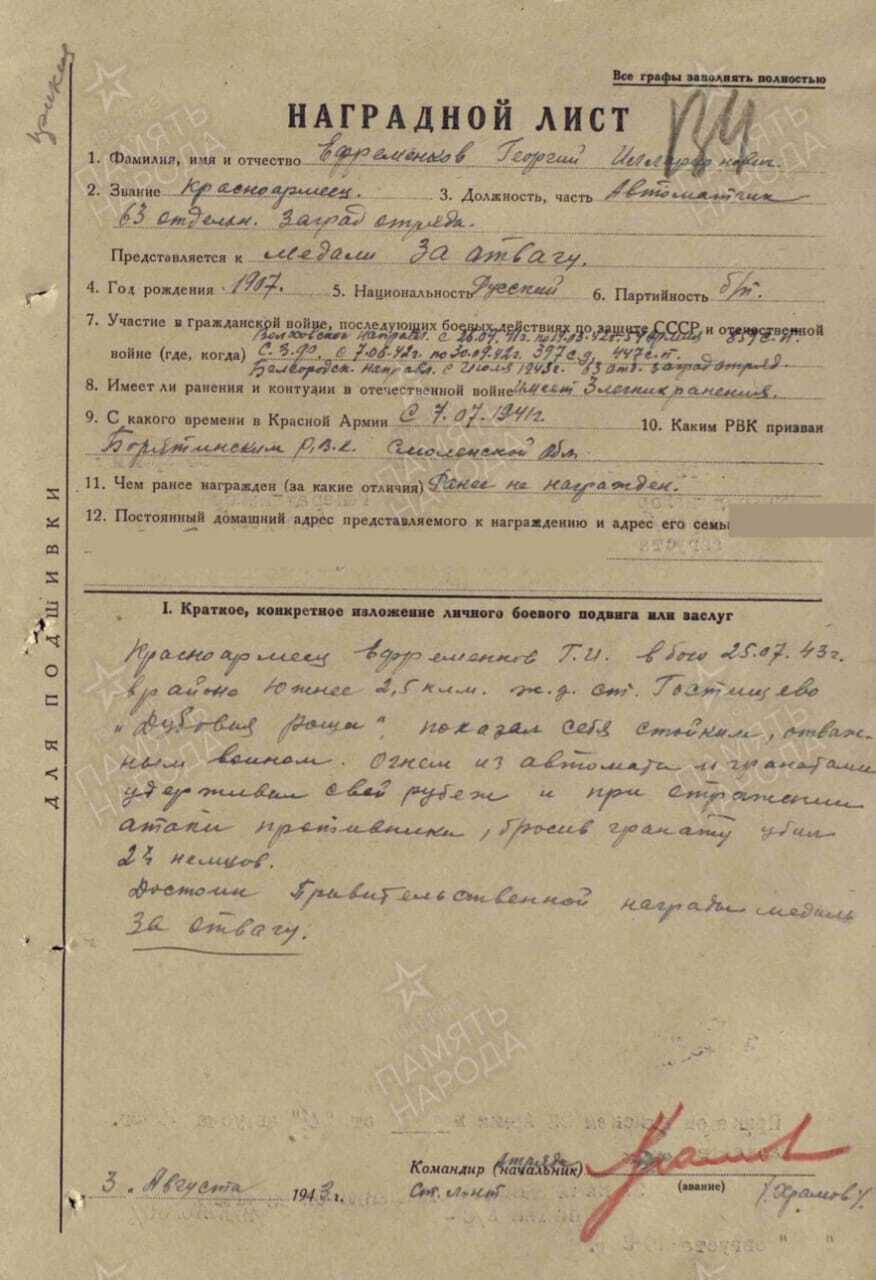 Все графы заполнять полностью
НАГРАДНОЙ ЛИСТ
1. Фамилия, имя и отчество Ефременков Георгий
2. Звание Красноармеец. 3. Должность, часть Автоматчик
63 отдельн. Заград отряда.
Представляется к медали За отвагу.
4. Год рождения 1907. 5. Национальность Русский 6. Партийность б/п.
7. Участие в гражданской войне, последующих боевых действиях по защите СССР и отечественной
Волховское направл. с 26.09.41г. по
войне (где, когда) С.З.фр, с 7.06.42г. по 30.09.42г. 397 с.д., 447 с.п.
Белгородск. направл. с Июля 1943г. 63 отд. заградотряд.
8. Имеет ли ранения и контузии в отечественной войне имеет 3 легких ранения.
9. С какого времени в Красной Армии С 7.07.1941г. 10. Каким РВК призван
Р.В.К. Смоленской обл.
11. Чем ранее награжден (за какие отличия) Ранее не награжден.
12. Постоянный домашний адрес представляемого к награждению и адрес его семьи
I. Краткое, конкретное изложение личного боевого подвига или заслуг
Красноармеец Ефременков Г.И. в бою 25.07.43г.
в районе Южнее 2,5 клм. ж.д. ст. Гостищево
"Дубовая роща", показал себя стойким, отваж-
ным воином. Огнем из автомата и гранатами
удерживал свой рубеж и при отражении
атаки противника, бросив гранату убил
немцов.
Достоин Правительственной награды медаль
За отвагу.
Командир (начальник) отряда
3. Августа 1943г. Ст. л-нт (звание) /Храмов/
ДЛЯ ПОДШИВКИ
ПАМЯТЬ НАРОДА